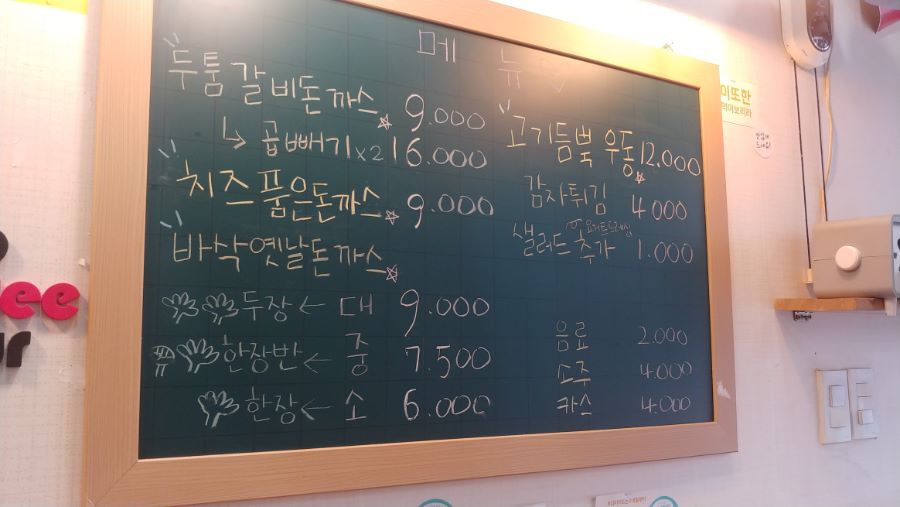 메 뉴
두툼갈비돈까스 9.000
↳ 곱빼기x2 16.000
치즈품은돈까스 9.000
바삭옛날돈까스
두장 ← 대 9.000
한장반 ← 중 7.500
한장 ← 소 6.000
고기듬뿍 우동 12.000
감자튀김 4.000
샐러드 추가 1.000
음료 2.000
소주 4.000
카스 4.000
이또한
먹어보리라
ee
ur